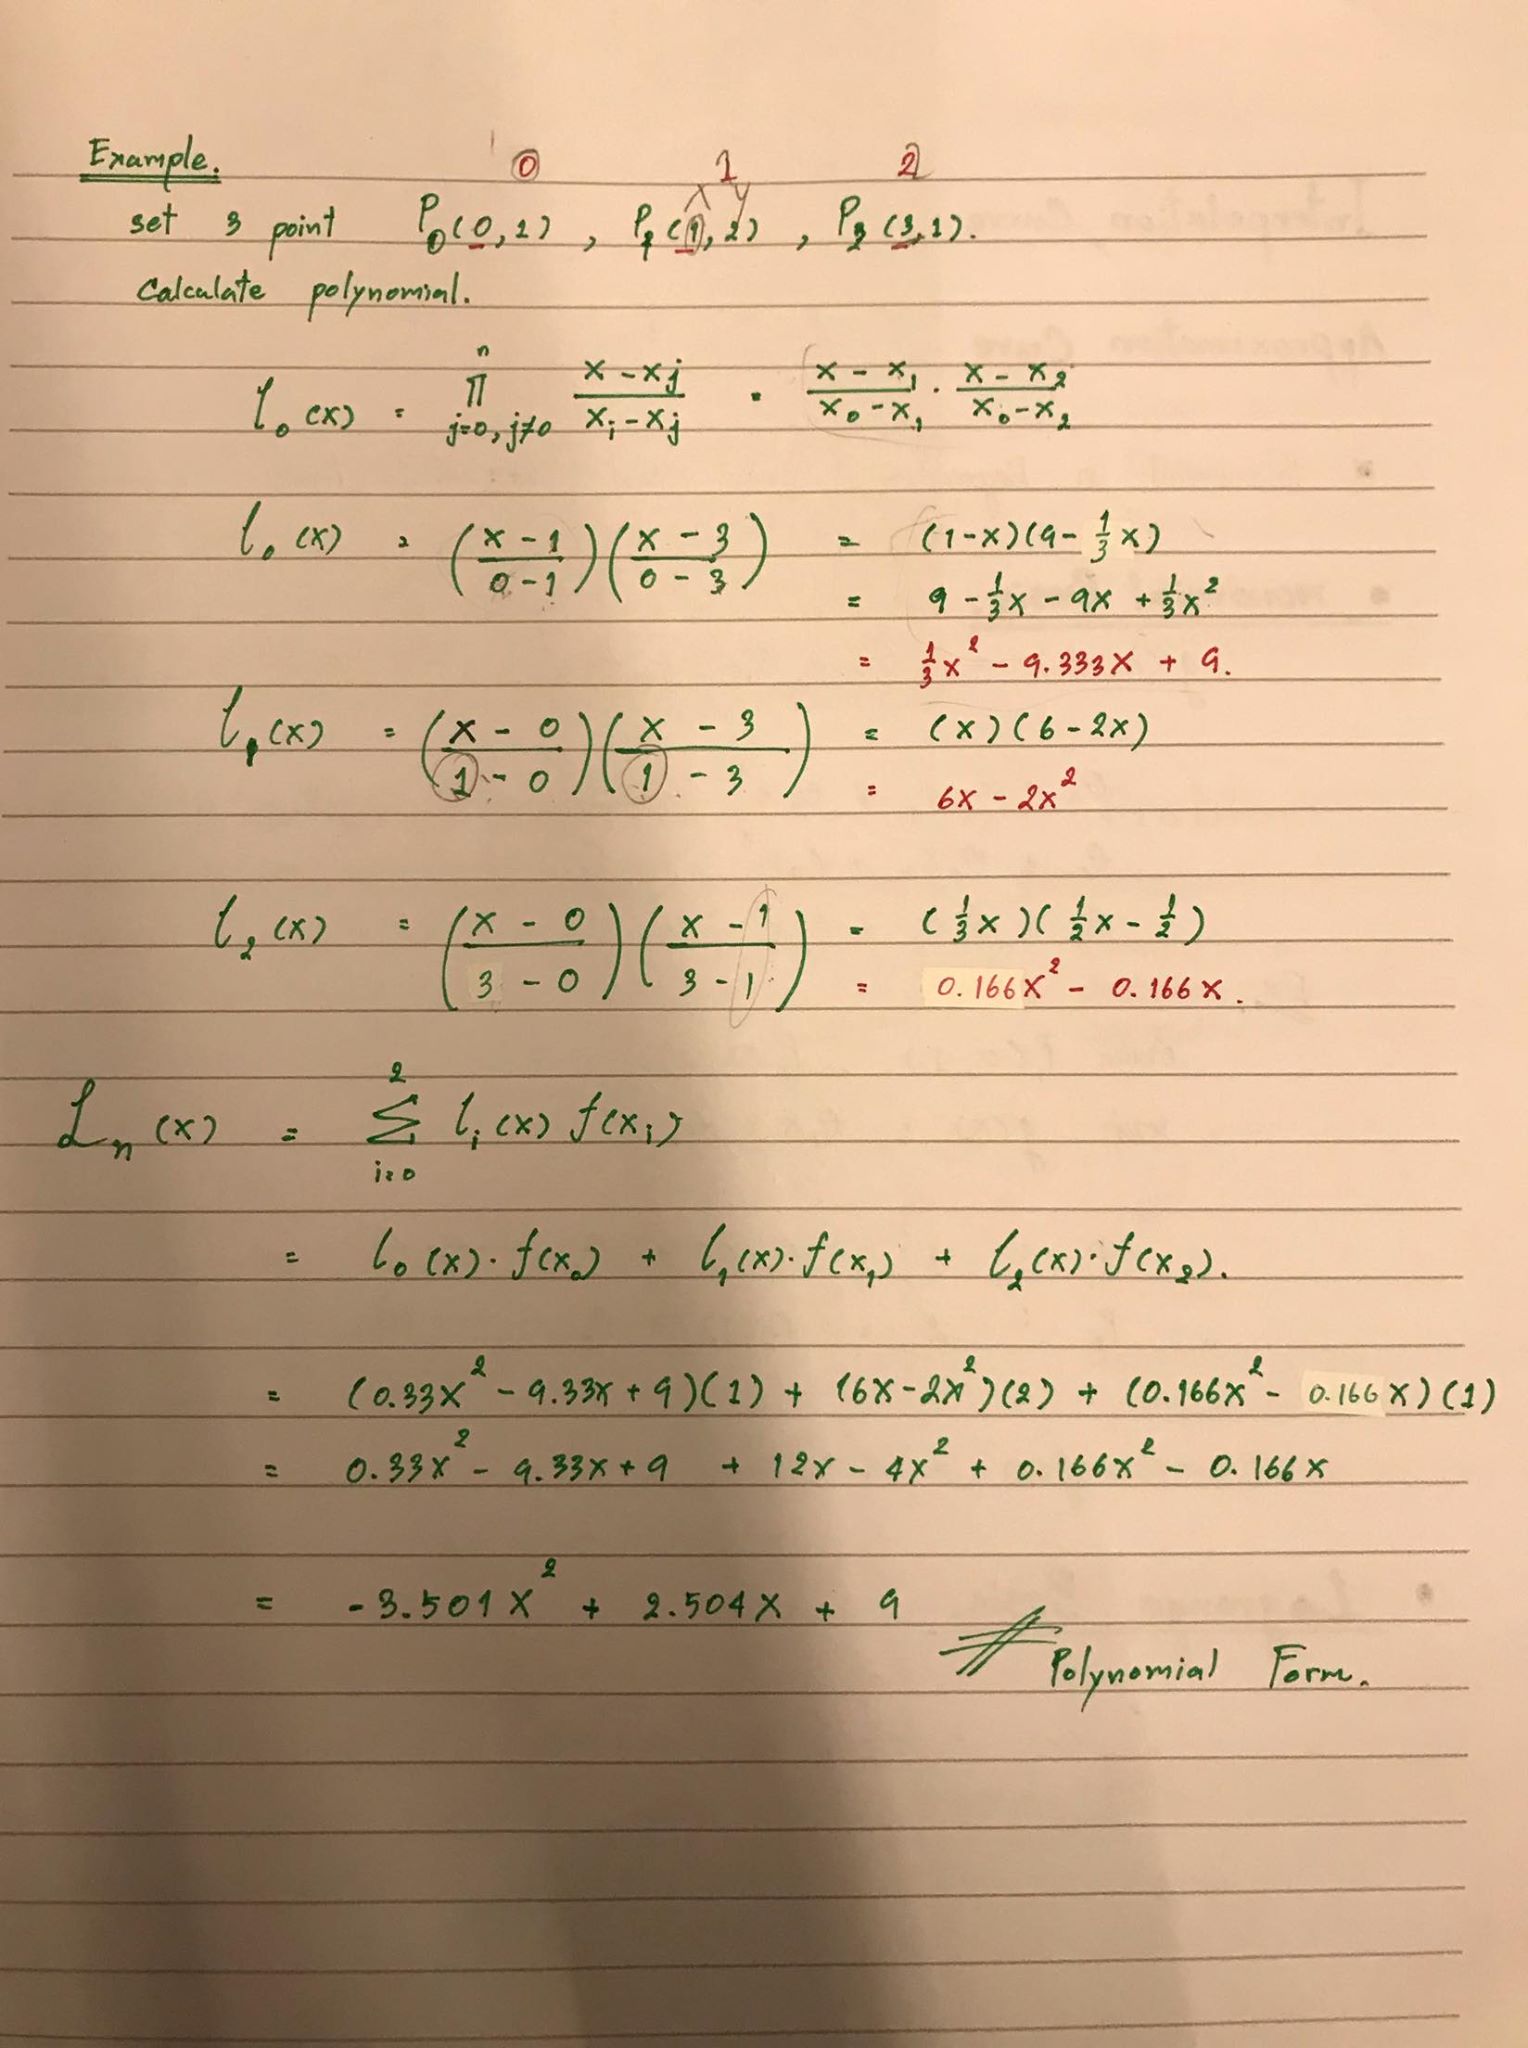 Example. 0 1 2
set 3 point P₀(0,1), P₁(1,2), P₂(3,1).
x y
Calculate polynomial.
l₀(x) = n Π j=0, j≠0 (x - xⱼ)/(xᵢ - xⱼ) = (x - x₁)/(x₀ - x₁) · (x - x₂)/(x₀ - x₂)
l₀(x) = ((x - 1)/(0 - 1))((x - 3)/(0 - 3)) = (1-x)(9 - 1/3 x)
= 9 - 1/3 x - 9x + 1/3 x²
= 1/3 x² - 9.333x + 9.
l₁(x) = ((x - 0)/(1 - 0))((x - 3)/(1 - 3)) = (x)(6 - 2x)
= 6x - 2x²
l₂(x) = ((x - 0)/(3 - 0))((x - 1)/(3 - 1)) = (1/3 x)(1/2 x - 1/2)
= 0.166x² - 0.166x.
Lₙ(x) = 2 Σ i=0 lᵢ(x) f(xᵢ)
= l₀(x)·f(x₀) + l₁(x)·f(x₁) + l₂(x)·f(x₂).
= (0.33x² - 9.33x + 9)(1) + (6x - 2x²)(2) + (0.166x² - 0.166x)(1)
= 0.33x² - 9.33x + 9 + 12x - 4x² + 0.166x² - 0.166x
= -3.501x² + 2.504x + 9
Polynomial Form.